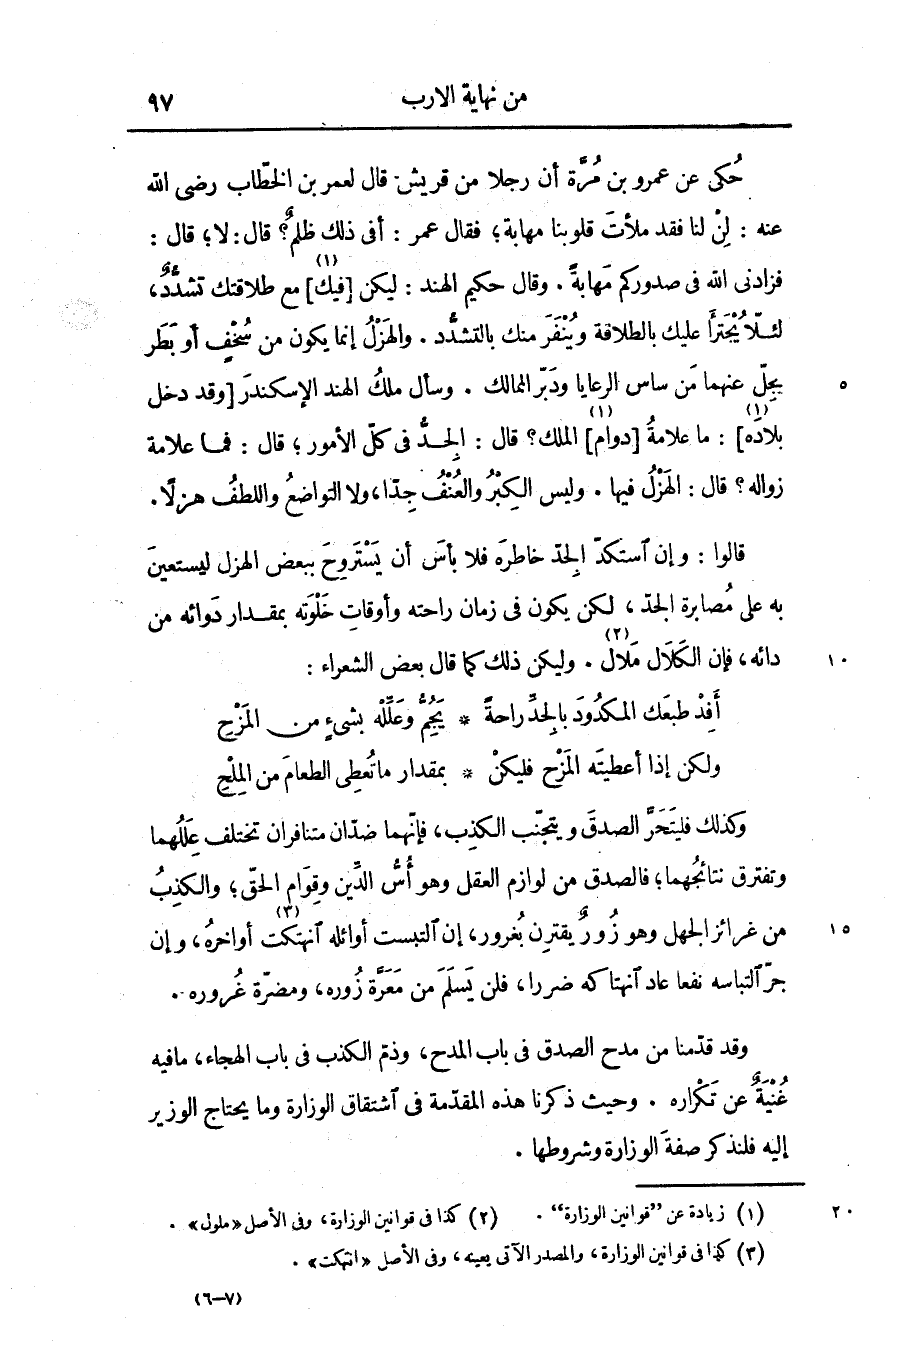 من نهاية الارب ٩٧
حُكى عن عمرو بن مُرَّة أن رجلا من قريش قال لعمر بن الخطّاب رضى الله
عنه : لِنْ لنا فقد ملأتَ قلوبنا مهابة؛ فقال عمر : أفى ذلك ظلمٌ؟ قال: لا؛ قال :
فزادنى الله فى صدوركم مَهابةً . وقال حكيم الهند : ليكن [فيك](١) مع طلاقتك تشدُّدٌ،
لئـلّا يُجْترَأَ عليك بالطلاقة ويُنْفَرَ منك بالتشدُّد . والهَزْلُ إنما يكون من سُخْفٍ أو بَطَر
يجِلّ عنهما مَن ساس الرعايا ودَبّر الممالك . وسأل ملكُ الهند الإسكندرَ [وقد دخل ٥
بلادَه](١) : ما علامةُ [دوام](١) الملك؟ قال : الجِـدُّ فى كلّ الأمور؛ قال : فمـا علامة
زواله؟ قال : الهَزْلُ فيها . وليس الكِبْرُ والعُنْفُ جِدّا، ولا التواضعُ واللطفُ هـزلًا.
قالوا : وإن ٱستكدّ الجِدّ خاطرَه فلا بأسَ أن يَسْتَرْوِحَ ببعض الهزل ليستعينَ
به على مُصابرة الجدّ ، لكن يكون فى زمان راحته وأوقاتِ خَلْوَته بمقـدار دَوائه من
دائه، فإن الكَلَال مَلَال(٢) . وليكن ذلك كما قال بعض الشعراء : ١٠
أَفِدْ طبعَك المكدُودَ بالجِدِّ راحةً * يَجُمُّ وعَلِّلْه بشىءٍ من المَزْحِ
ولكن إذا أعطيتَه المَزْح فليكنْ * بمقدار ما تُعطِى الطعامَ من المِلْحِ
وكذلك فليَتَحَرَّ الصدقَ ويتجنّب الكذِب، فإنّهما ضدّان متنافران تختلف عِلَلُهما
وتفترق نتائجُهما؛ فالصدق من لوازم العقل وهو أُسُّ الدِّين وقِوَام الحقّ؛ والكذبُ
من غرائز الجهل وهو زُورٌ يقترن بغُرور، إن ٱلتبست أوائله ٱنهتكت(٣) أواخرهُ، وإن ١٥
جرّ ٱلتباسه نفعا عاد ٱنهتاكه ضررا، فلن يَسلَمَ من مَعَرَّة زُوره، ومضرّة غُروره .
وقد قدّمنا من مدح الصدق فى باب المدح، وذمّ الكذب فى باب الهجاء، ما فيه
غُنْيَةٌ عن تَكْراره . وحيث ذكرنا هذه المقدّمة فى ٱشتقاق الوزارة وما يحتاج الوزير
إليه فلنذكر صفةَ الوزارة وشروطها .
(١) زيادة عن "قوانين الوزارة" . (٢) كذا فى قوانين الوزارة، وفى الأصل «ملول» . ٢٠
(٣) كذا فى قوانين الوزارة، والمصدر الآتى يعينه، وفى الأصل «انتهكت» .
(٧-٦)